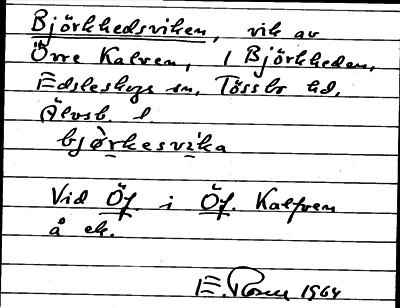 Björkhedsviken, vik av
Övre Kalven, i Björkheden,
Edsleskogs sn, Tössbo hd,
Älvsb. l
bjø̀rkesvika
Vid Öf. i Öf. Kalfven
å ek.
E. Rosell 1964